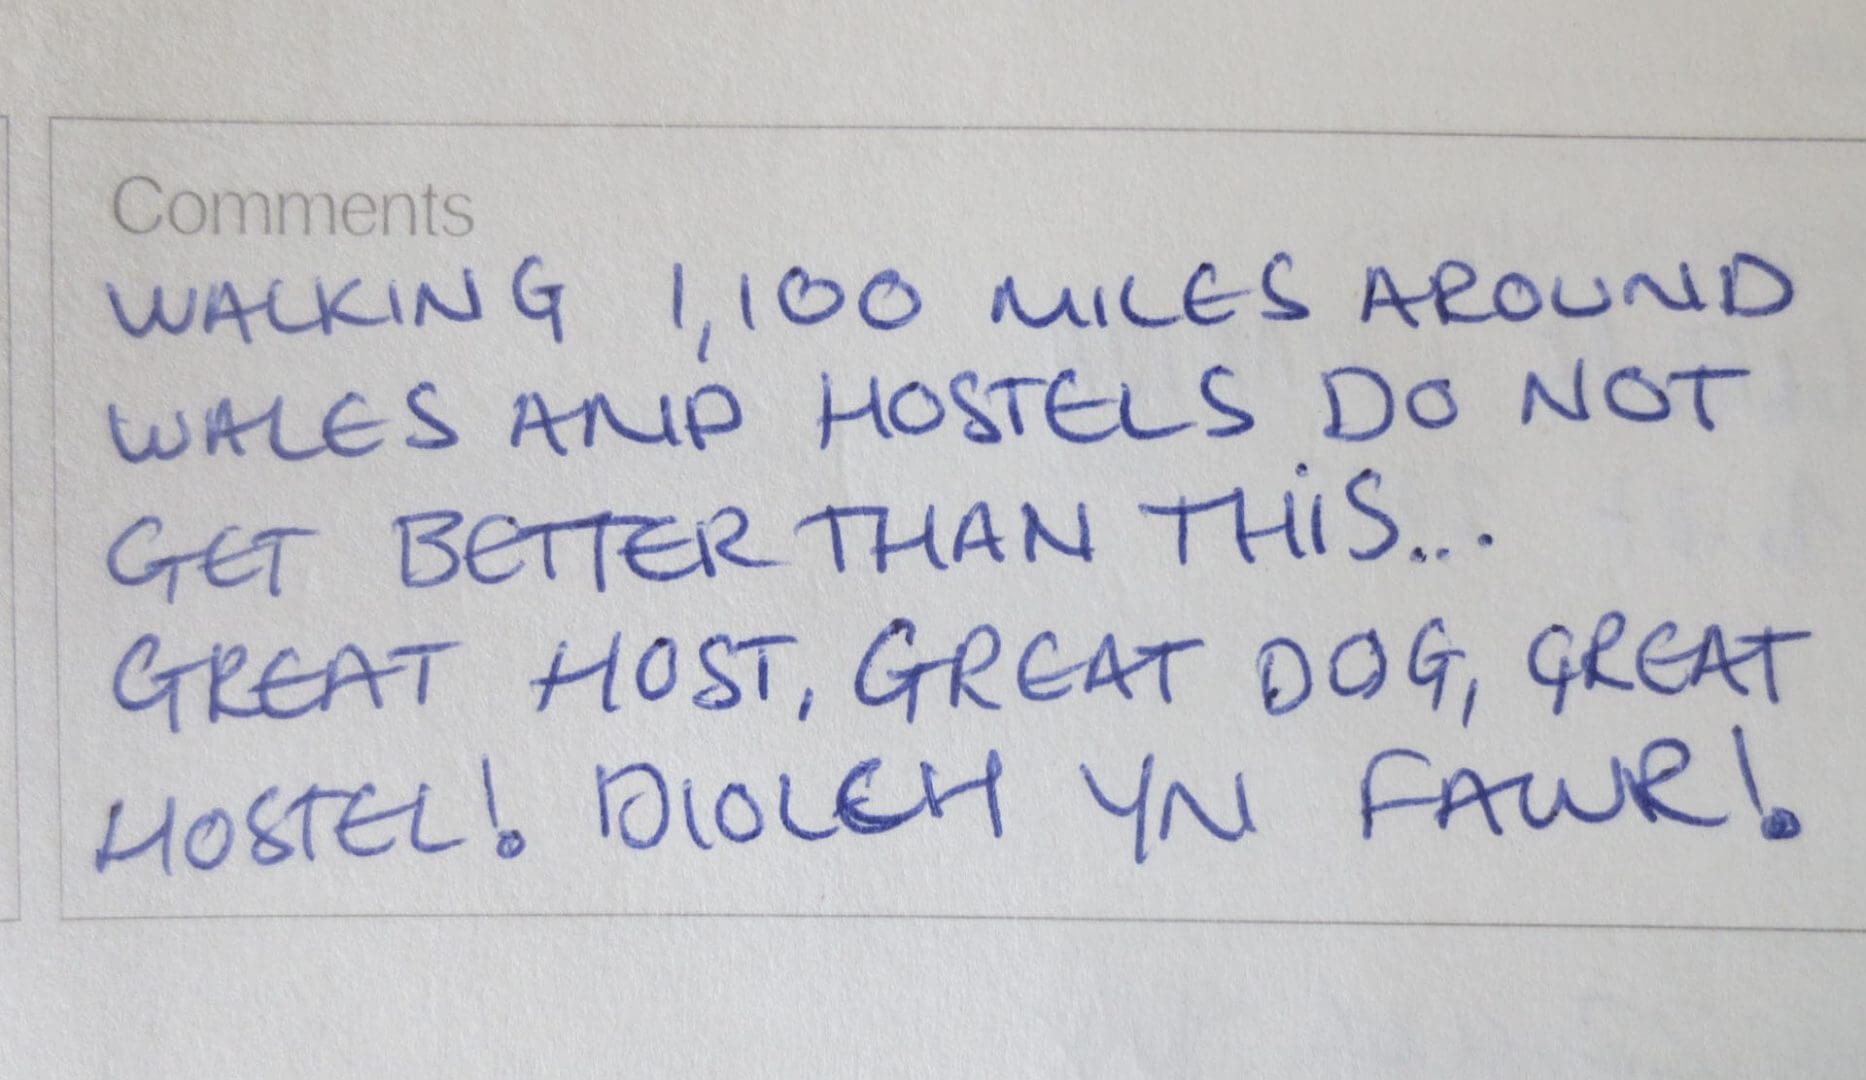 Comments
WALKING 1,100 MILES AROUND
WALES AND HOSTELS DO NOT
GET BETTER THAN THIS...
GREAT HOST, GREAT DOG, GREAT
HOSTEL! DIOLCH YN FAWR!